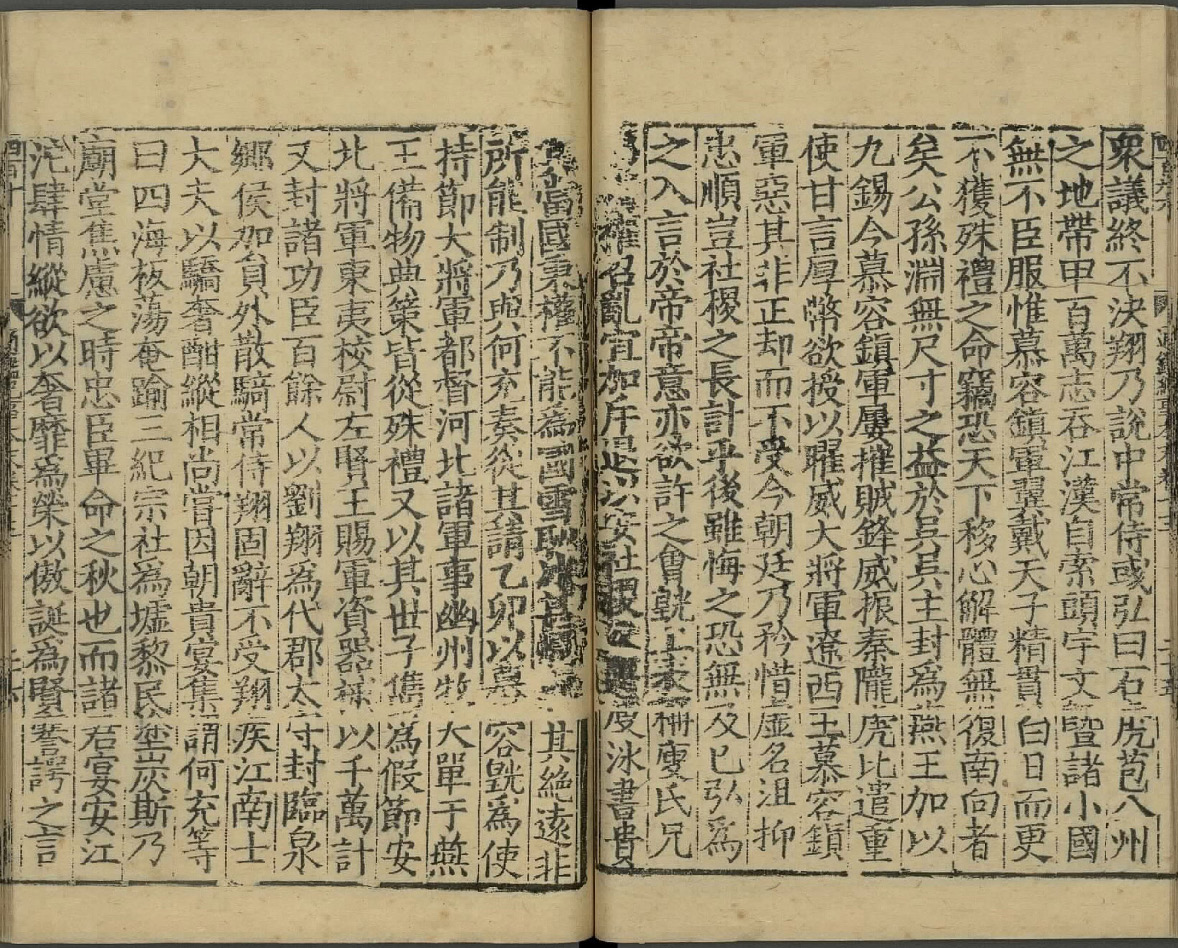 衆議終不決翔乃說中常侍彧弘曰石虎苞八州
之地帶甲百萬志吞江漢自索頭宇文暨諸小國
無不臣服惟慕容鎮軍翼戴天子精貫白日而更
不獲殊禮之命竊恐天下移心解體無復南向者
矣公孫淵無尺寸之益於吳吳主封為燕王加以
九錫今慕容鎮軍屢摧賊鋒威振秦隴虎比遣重
使甘言厚幣欲授以曜威大將軍遼西王慕容鎮
軍惡其非正却而不受今朝廷乃矜惜虛名沮抑
忠順豈社稷之長計乎後雖悔之恐無及已弘為
之入言於帝帝意亦欲許之會皝上表稱庾氏兄
權召亂宜加斥退以安社稷庾冰書責
當國秉權不能為國雪恥其絕遠非
所能制乃與何充奏從其請乙卯以慕容皝為使
持節大將軍都督河北諸軍事幽州牧大單于燕
王備物典策皆從殊禮又以其世子儁為假節安
北將軍東夷校尉左賢王賜軍資器械以千萬計
又封諸功臣百餘人以劉翔為代郡太守封臨泉
鄉侯加員外散騎常侍翔固辭不受翔疾江南士
大夫以驕奢酣縱相尚嘗因朝貴宴集謂何充等
曰四海板蕩奄踰三紀宗社為墟黎民塗炭斯乃
廟堂焦慮之時忠臣畢命之秋也而諸君宴安江
沱肆情縱欲以奢靡為榮以傲誕為賢謇諤之言